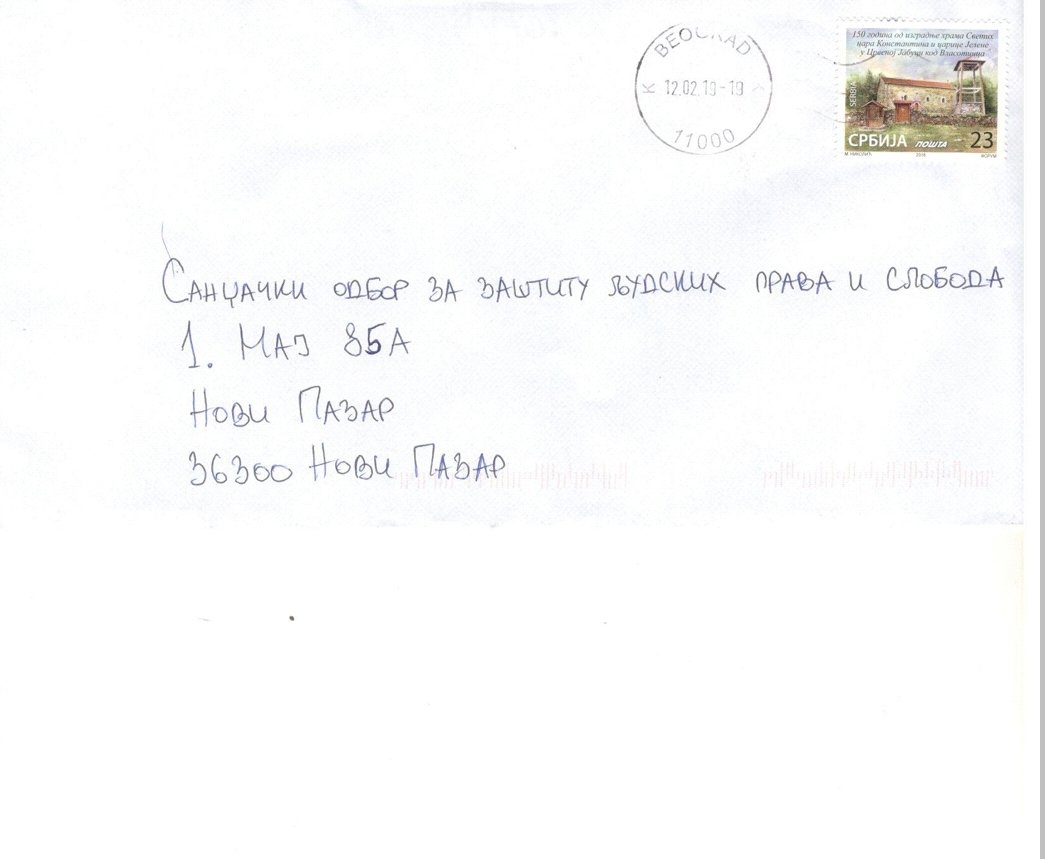 БЕОГРАД
К 12.02.19-19 К
11000
150 година од изградње храма Светих
цара Константина и царице Јелене
у Црвеној Јабуци код Власотинца
SERBIA
СРБИЈА ПОШТА 23
М. НИКОЛИЋ 2018 ФОРУМ
Санџачки одбор за заштиту људских права и слобода
1. Мај 85А
Нови Пазар
36300 Нови Пазар